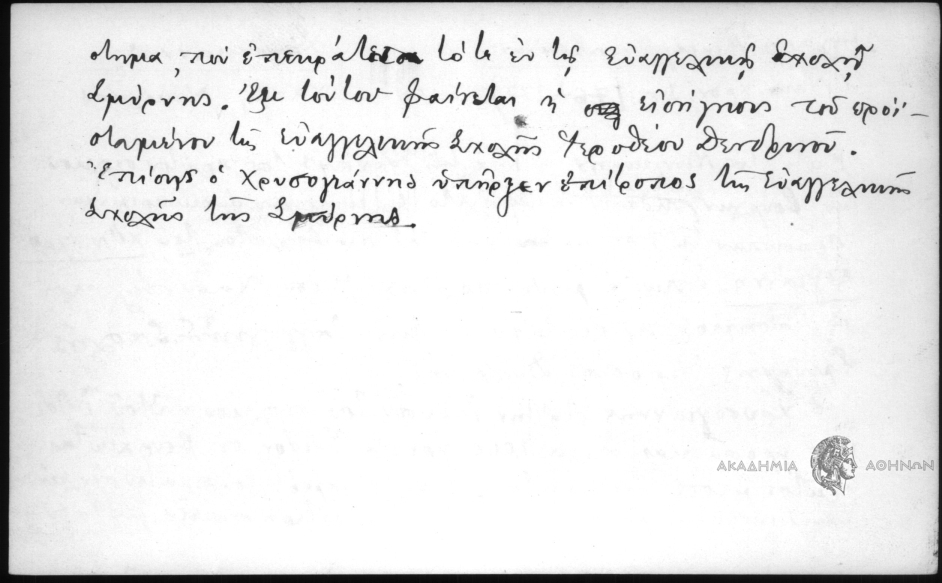 στημα, που ἐπεκράτει τότε ἐν τῇ Εὐαγγελικῇ Σχολῇ
Σμύρνης. Ἐκ τούτου φαίνεται ἡ εἰσήγησις τοῦ προϊ-
σταμένου τῆς Εὐαγγελικῆς Σχολῆς Ἱεροθέου Δενδρινοῦ.
Ἐπίσης ὁ Χρυσογιάννης ὑπῆρξεν ἐπίτροπος τῆς Εὐαγγελικῆς
Σχολῆς της Σμύρνης.
ΑΚΑΔΗΜΙΑ ΑΘΗΝΩΝ